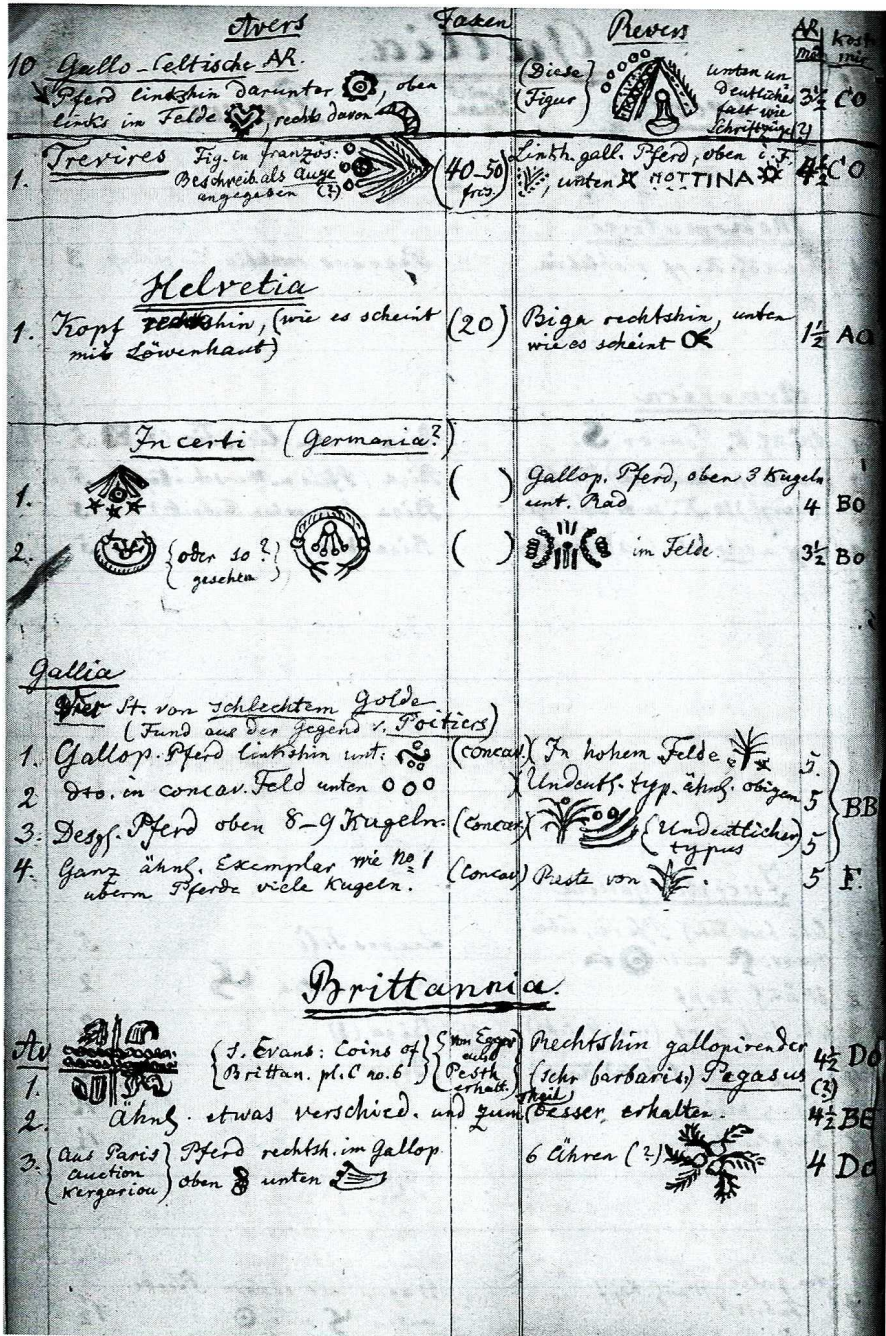 Avers Taxen Revers AR kost
mir
10 Gallo-Celtische AR.
Pferd linkshin darunter , oben
links im Felde , rechts davon
(Diese
(Figur
unten un
deutliches
fast wie
Schriftzüge(?)
3½ CO
1. Trevires Fig. in französ:
Beschreib. als Auge
angegeben (?)
(40-50)
frcs.
Linksh. gall. Pferd, oben i. F.
, unten MOTTINA
4½ CO
Helvetia
1. Kopf rechtshin, (wie es scheint
mit Löwenhaut)
(20)
Biga rechtshin, unten
wie es scheint
1½ AO
Incerti (Germania?)
1. ( ) Gallop. Pferd, oben 3 Kugeln
unt. Rad
4 BO
2. {oder so?}
gesehen
( ) im Felde 3½ BO
Gallia
Vier St. von schlechtem Golde
(Fund aus der Gegend v. Poitiers)
1. Gallop. Pferd linkshin unt: (concav.) In hohem Felde 5.
2 dto. in concav. Feld unten ) Undeutl. typ. ähnl. obigen 5
BB
3. Desgl. Pferd oben 8-9 Kugeln. (concav.) (Undeutlicher
typus 5
4. Ganz ähnl. Exemplar wie No 1
überm Pferde viele Kugeln.
(Concav) Reste von . 5 F.
Brittannia.
Av
1.
{s. Evans: Coins of
Brittan. pl. C no. 6}
von Egger
aus
Pesth
erhalt.
Rechtshin gallopirender
(sehr barbaris.) Pegasus
4½ DO
(?)
2. ähnl. etwas verschied. und zum theil besser erhalten. 4½ BE
3. {Aus Paris
Auction
Kergariou}
Pferd rechtsh. im Gallop
oben unten
6 Ähren (?)
4 DO